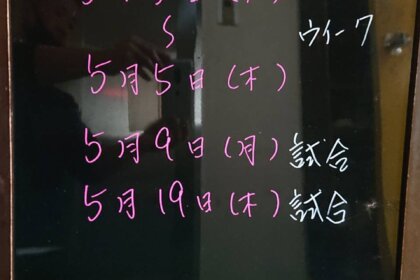 S ウィーク
5月5日(木)
5月9日(月)試合
5月19日(木)試合